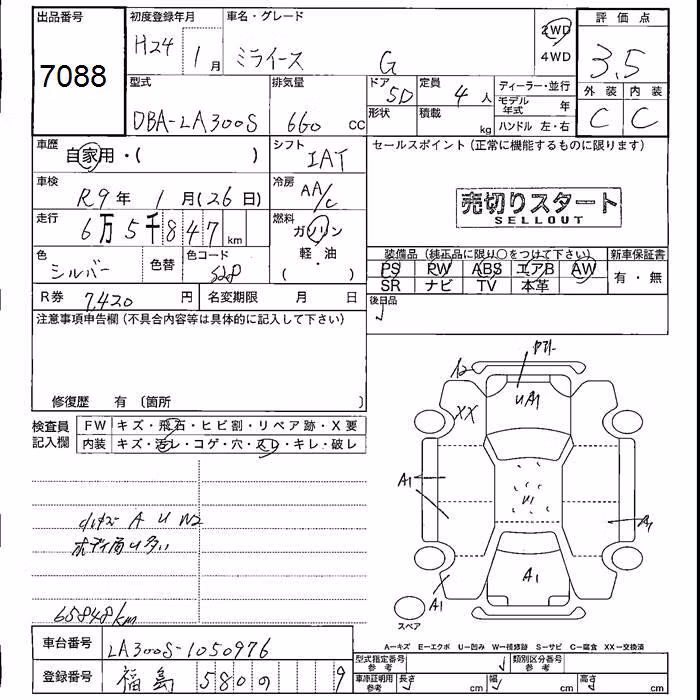 出品番号
7088
初度登録年月
H24 1月
車名・グレード
ミライース G
2WD
4WD
評価点
3.5
外装 内装
C C
型式
DBA-LA300S
排気量
660 cc
ドア
5D
定員
4人
形状
積載
kg
ディーラー・並行
モデル年式 年
ハンドル 左・右
車歴
自家用・( )
シフト
IAT
セールスポイント(正常に機能するものに限ります)
売切りスタート
SELLOUT
車検
R9年 1月(26日)
冷房
AA/C
走行
6万5千847km
燃料
ガソリン
軽・油
( )
色
シルバー
色替
色コード
S28
装備品(純正品に限り○をつけて下さい)
新車保証書
PS PW ABS エアB AW
SR ナビ TV 本革
有・無
R券 7,420円
名変期限 月 日
後日品
注意事項申告欄(不具合内容等は具体的に記入して下さい)
修復歴 有〔箇所 〕
検査員記入欄
FW キズ・飛石・ヒビ割・リペア跡・X要
内装 キズ・汚レ・コゲ・穴・スレ・キレ・破レ
A U W2
65848km
XX
UA1
A1
U1
A1
A1
A1
スペア
A=キズ E=エクボ U=凹み W=補修跡 S=サビ C=腐食 XX=交換済
車台番号
LA300S-1050976
登録番号
福島 580 の 9
型式指定番号
参考
類別区分番号
参考
車庫証明用
参考
長さ cm
幅 cm
高さ cm